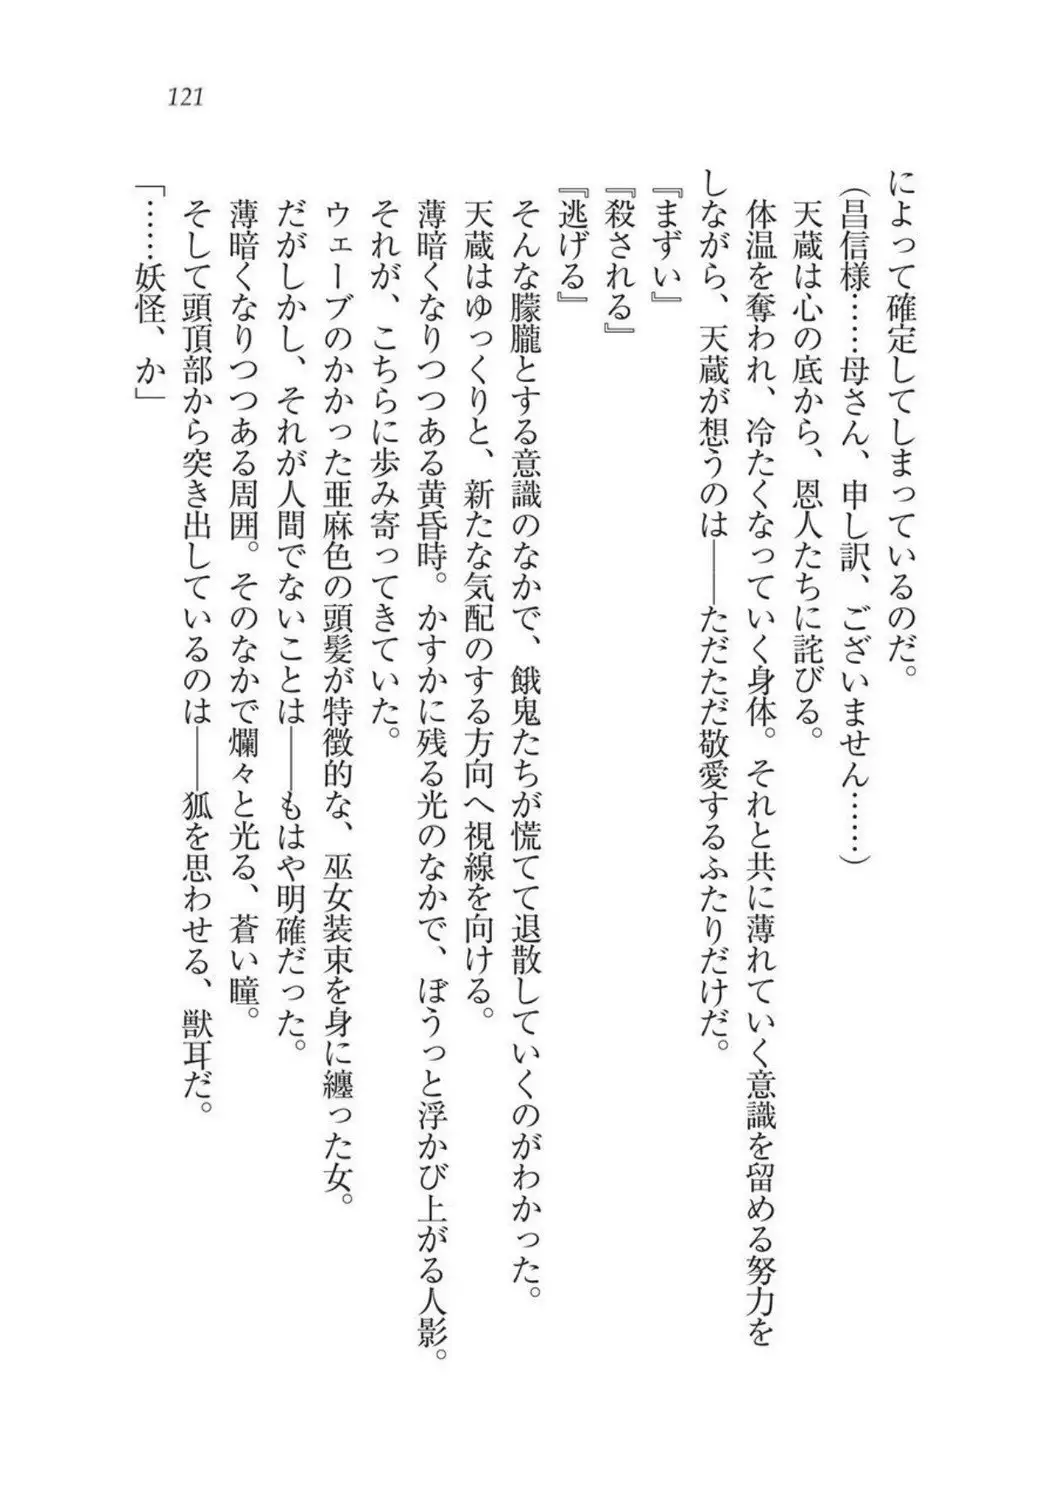 121
によって確定してしまっているのだ。
（昌信様……母さん、申し訳、ございません……）
天蔵は心の底から、恩人たちに詫びる。
体温を奪われ、冷たくなっていく身体。それと共に薄れていく意識を留める努力を
しながら、天蔵が想うのは――ただただ敬愛するふたりだけだ。
『まずい』
『殺される』
『逃げる』
そんな朦朧とする意識のなかで、餓鬼たちが慌てて退散していくのがわかった。
天蔵はゆっくりと、新たな気配のする方向へ視線を向ける。
薄暗くなりつつある黄昏時。かすかに残る光のなかで、ぼうっと浮かび上がる人影。
それが、こちらに歩み寄ってきていた。
ウェーブのかかった亜麻色の頭髪が特徴的な、巫女装束を身に纏った女。
だがしかし、それが人間でないことは――もはや明確だった。
薄暗くなりつつある周囲。そのなかで爛々と光る、蒼い瞳。
そして頭頂部から突き出しているのは――狐を思わせる、獣耳だ。
「……妖怪、か」